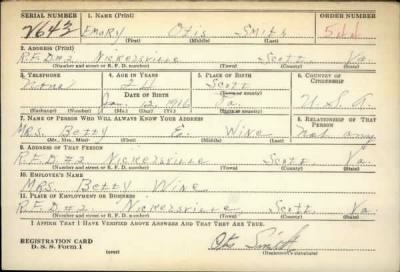 SERIAL NUMBER 1. NAME (Print) ORDER NUMBER
Emory Otis Smith
(First) (Middle) (Last)
2. ADDRESS (Print)
R.F.D. #2 Nickelsville Scott Va.
(Number and street or R. F. D. number) (Town) (County) (State)
3. TELEPHONE 4. AGE IN YEARS 5. PLACE OF BIRTH 6. COUNTRY OF CITIZENSHIP
None Scott
DATE OF BIRTH (Town or county)
Jan. 12 1916 Va. U.S.A.
(Exchange) (Number) (Mo.) (Day) (Yr.) (State or country)
7. NAME OF PERSON WHO WILL ALWAYS KNOW YOUR ADDRESS 8. RELATIONSHIP OF THAT PERSON
Mrs. Betty E. Wine Not any
(Mr., Mrs., Miss) (First) (Middle) (Last)
9. ADDRESS OF THAT PERSON
R.F.D. #2 Nickelsville Scott Va.
(Number and street or R. F. D. number) (Town) (County) (State)
10. EMPLOYER'S NAME
Mrs. Betty Wine
11. PLACE OF EMPLOYMENT OR BUSINESS
R.F.D. #2 Nickelsville Scott Va.
(Number and street or R. F. D. number) (Town) (County) (State)
I AFFIRM THAT I HAVE VERIFIED ABOVE ANSWERS AND THAT THEY ARE TRUE.
REGISTRATION CARD
D. S. S. Form 1 (over) Otis Smith
(Registrant's signature)